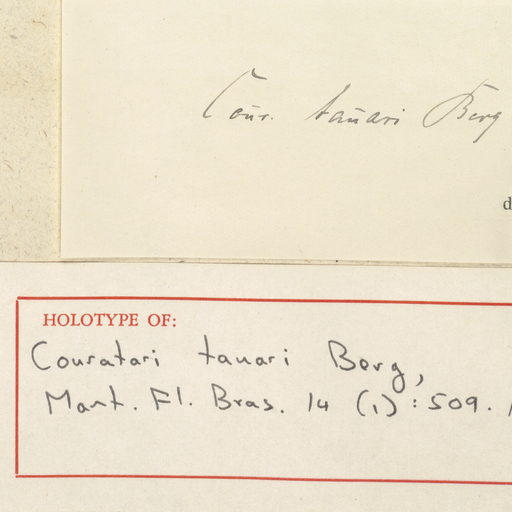 Cour. tauari Berg
d
HOLOTYPE OF:
Couratari tauari Berg,
Mart. Fl. Bras. 14 (1): 509.